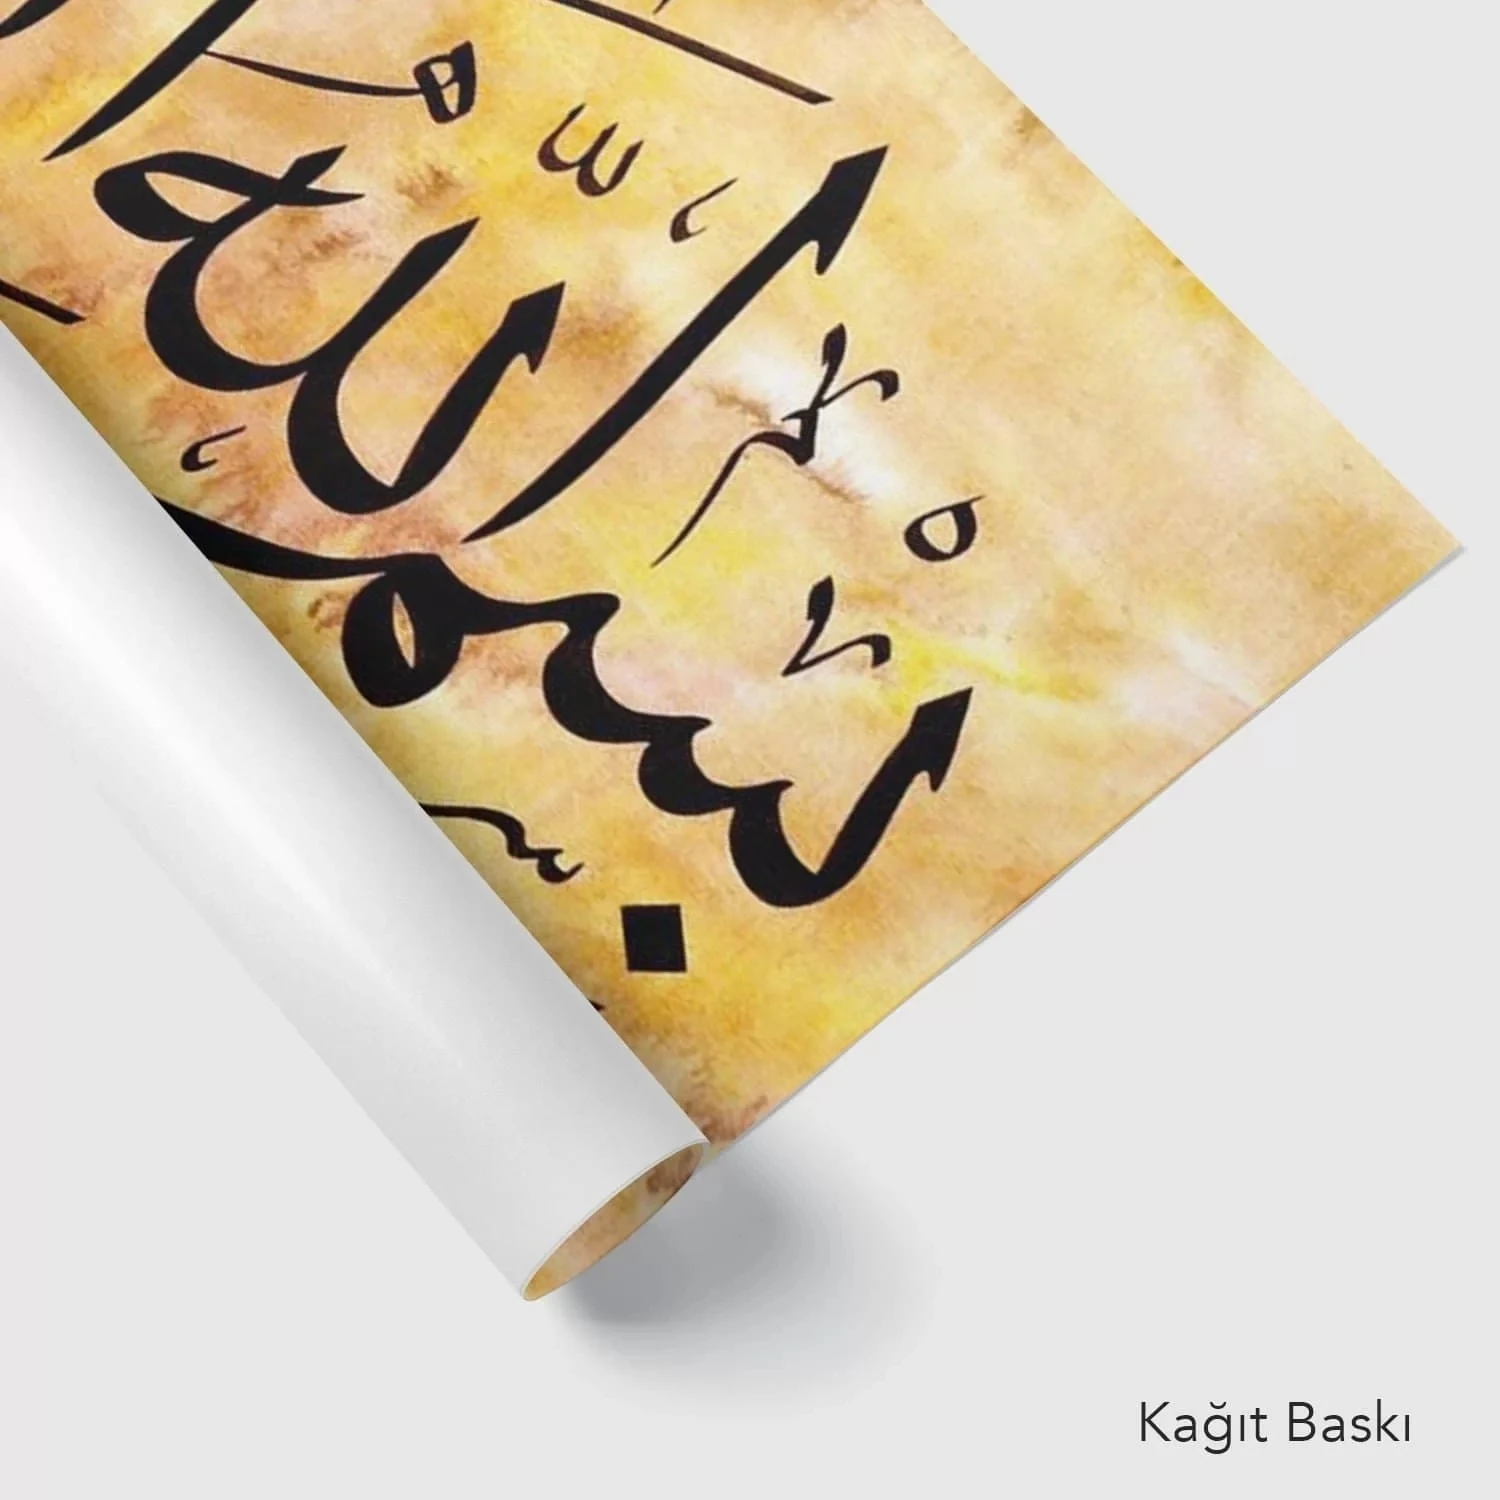 بسم الله
Kağıt Baskı